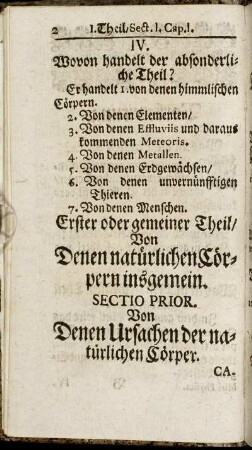 2 I. Theil/ Sect. I. Cap. I.
IV.
Wovon handelt der absonderli-
che Theil?
Er handelt 1. von denen himmlischen
Cörpern.
2. Von denen Elementen/
3. Von denen Effluviis und daraus
kommenden Meteoris.
4. Von denen Metallen.
5. Von denen Erdgewächsen/
6. Von denen unvernünfftigen
Thieren.
7. Von denen Menschen.
Erster oder gemeiner Theil/
Von
Denen natürlichen Cör-
pern insgemein.
SECTIO PRIOR.
Von
Denen Ursachen der na-
türlichen Cörper.
CA-